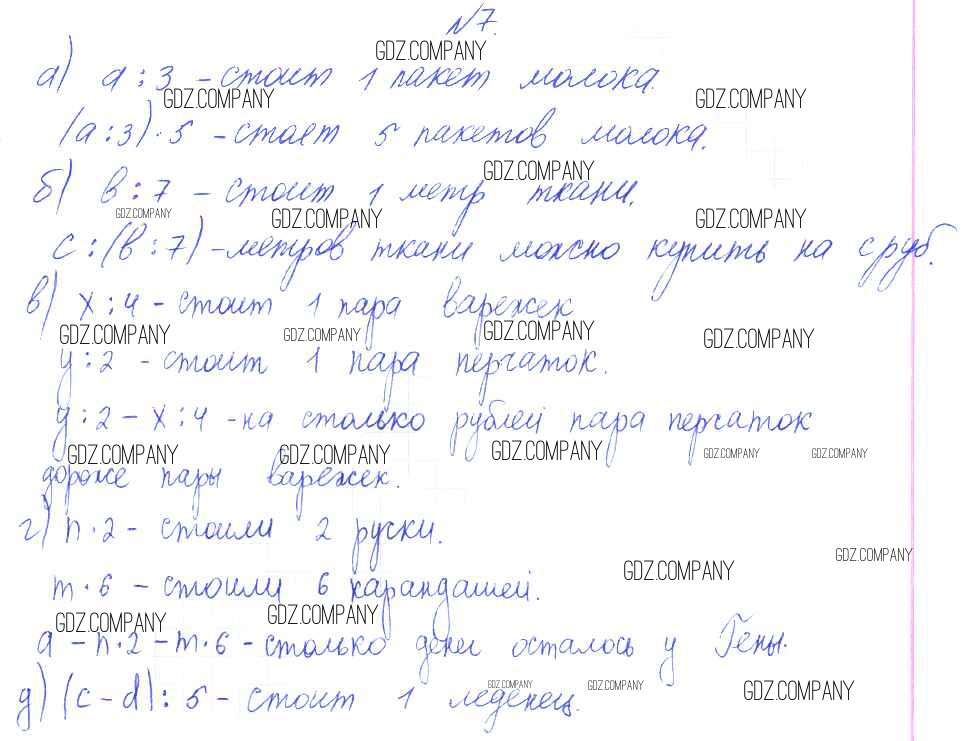 №7.
GDZ.COMPANY
а) a : 3 – стоит 1 пакет молока.
GDZ.COMPANY GDZ.COMPANY
(a : 3) · 5 – стоят 5 пакетов молока.
GDZ.COMPANY
б) в : 7 – стоит 1 метр ткани.
GDZ.COMPANY GDZ.COMPANY GDZ.COMPANY
c : (в : 7) – метров ткани можно купить на c руб.
в) x : 4 – стоит 1 пара варежек
GDZ.COMPANY GDZ.COMPANY GDZ.COMPANY GDZ.COMPANY
y : 2 – стоит 1 пара перчаток.
y : 2 – x : 4 – на столько рублей пара перчаток
GDZ.COMPANY GDZ.COMPANY GDZ.COMPANY GDZ.COMPANY GDZ.COMPANY
дороже пары варежек.
г) n · 2 – стоили 2 руски.
GDZ.COMPANY
GDZ.COMPANY
m · 6 – стоили 6 карандашей.
GDZ.COMPANY GDZ.COMPANY
a – n · 2 – m · 6 – столько денег осталось у Гены.
GDZ.COMPANY GDZ.COMPANY GDZ.COMPANY
д) (c – d) : 5 – стоит 1 леденец.